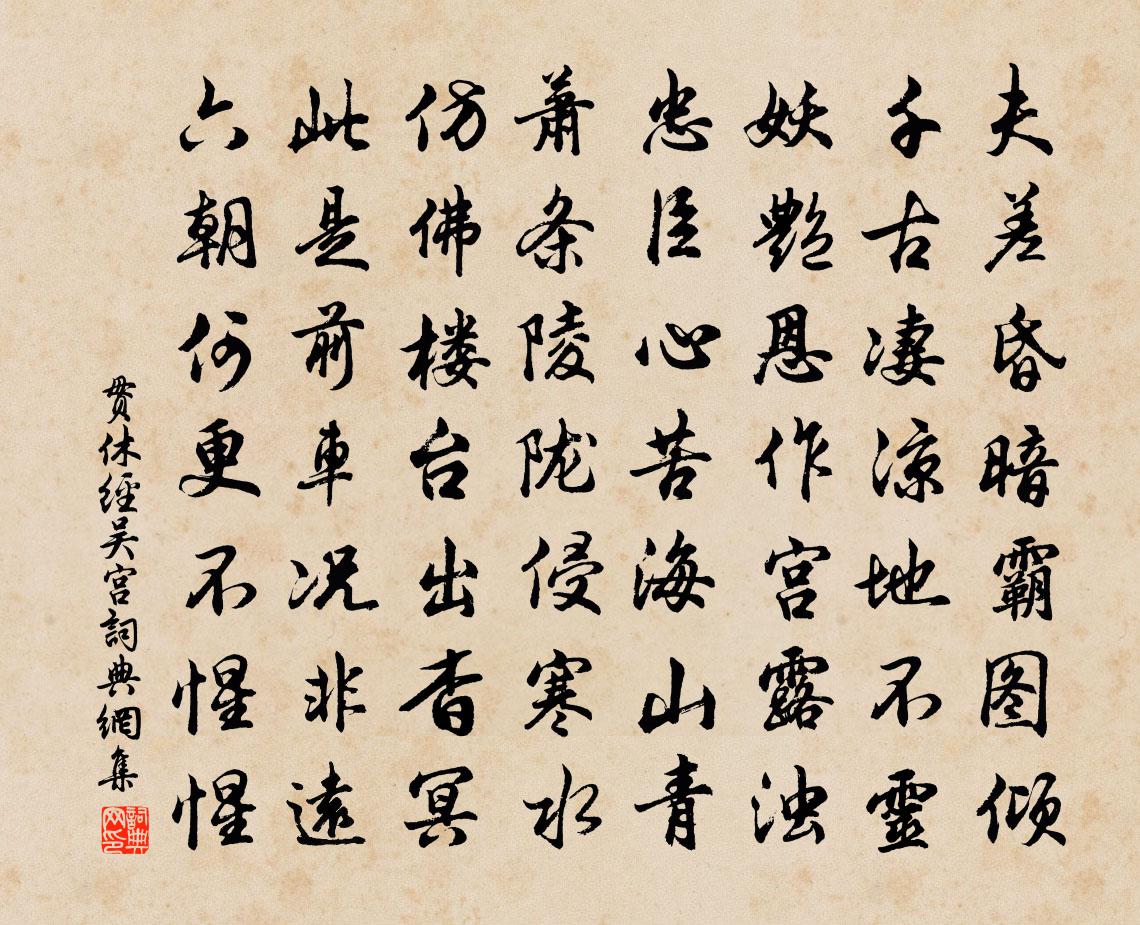 夫差昏暗霸图倾
千古凄涼地不靈
妖艷恩作宫露浊
忠臣心苦海山青
蕭条陵陇侵寒水
仿佛楼台出杳冥
此是前車况非遠
六朝何更不惺惺
贯休經吴宫詞典網集
詞典网印